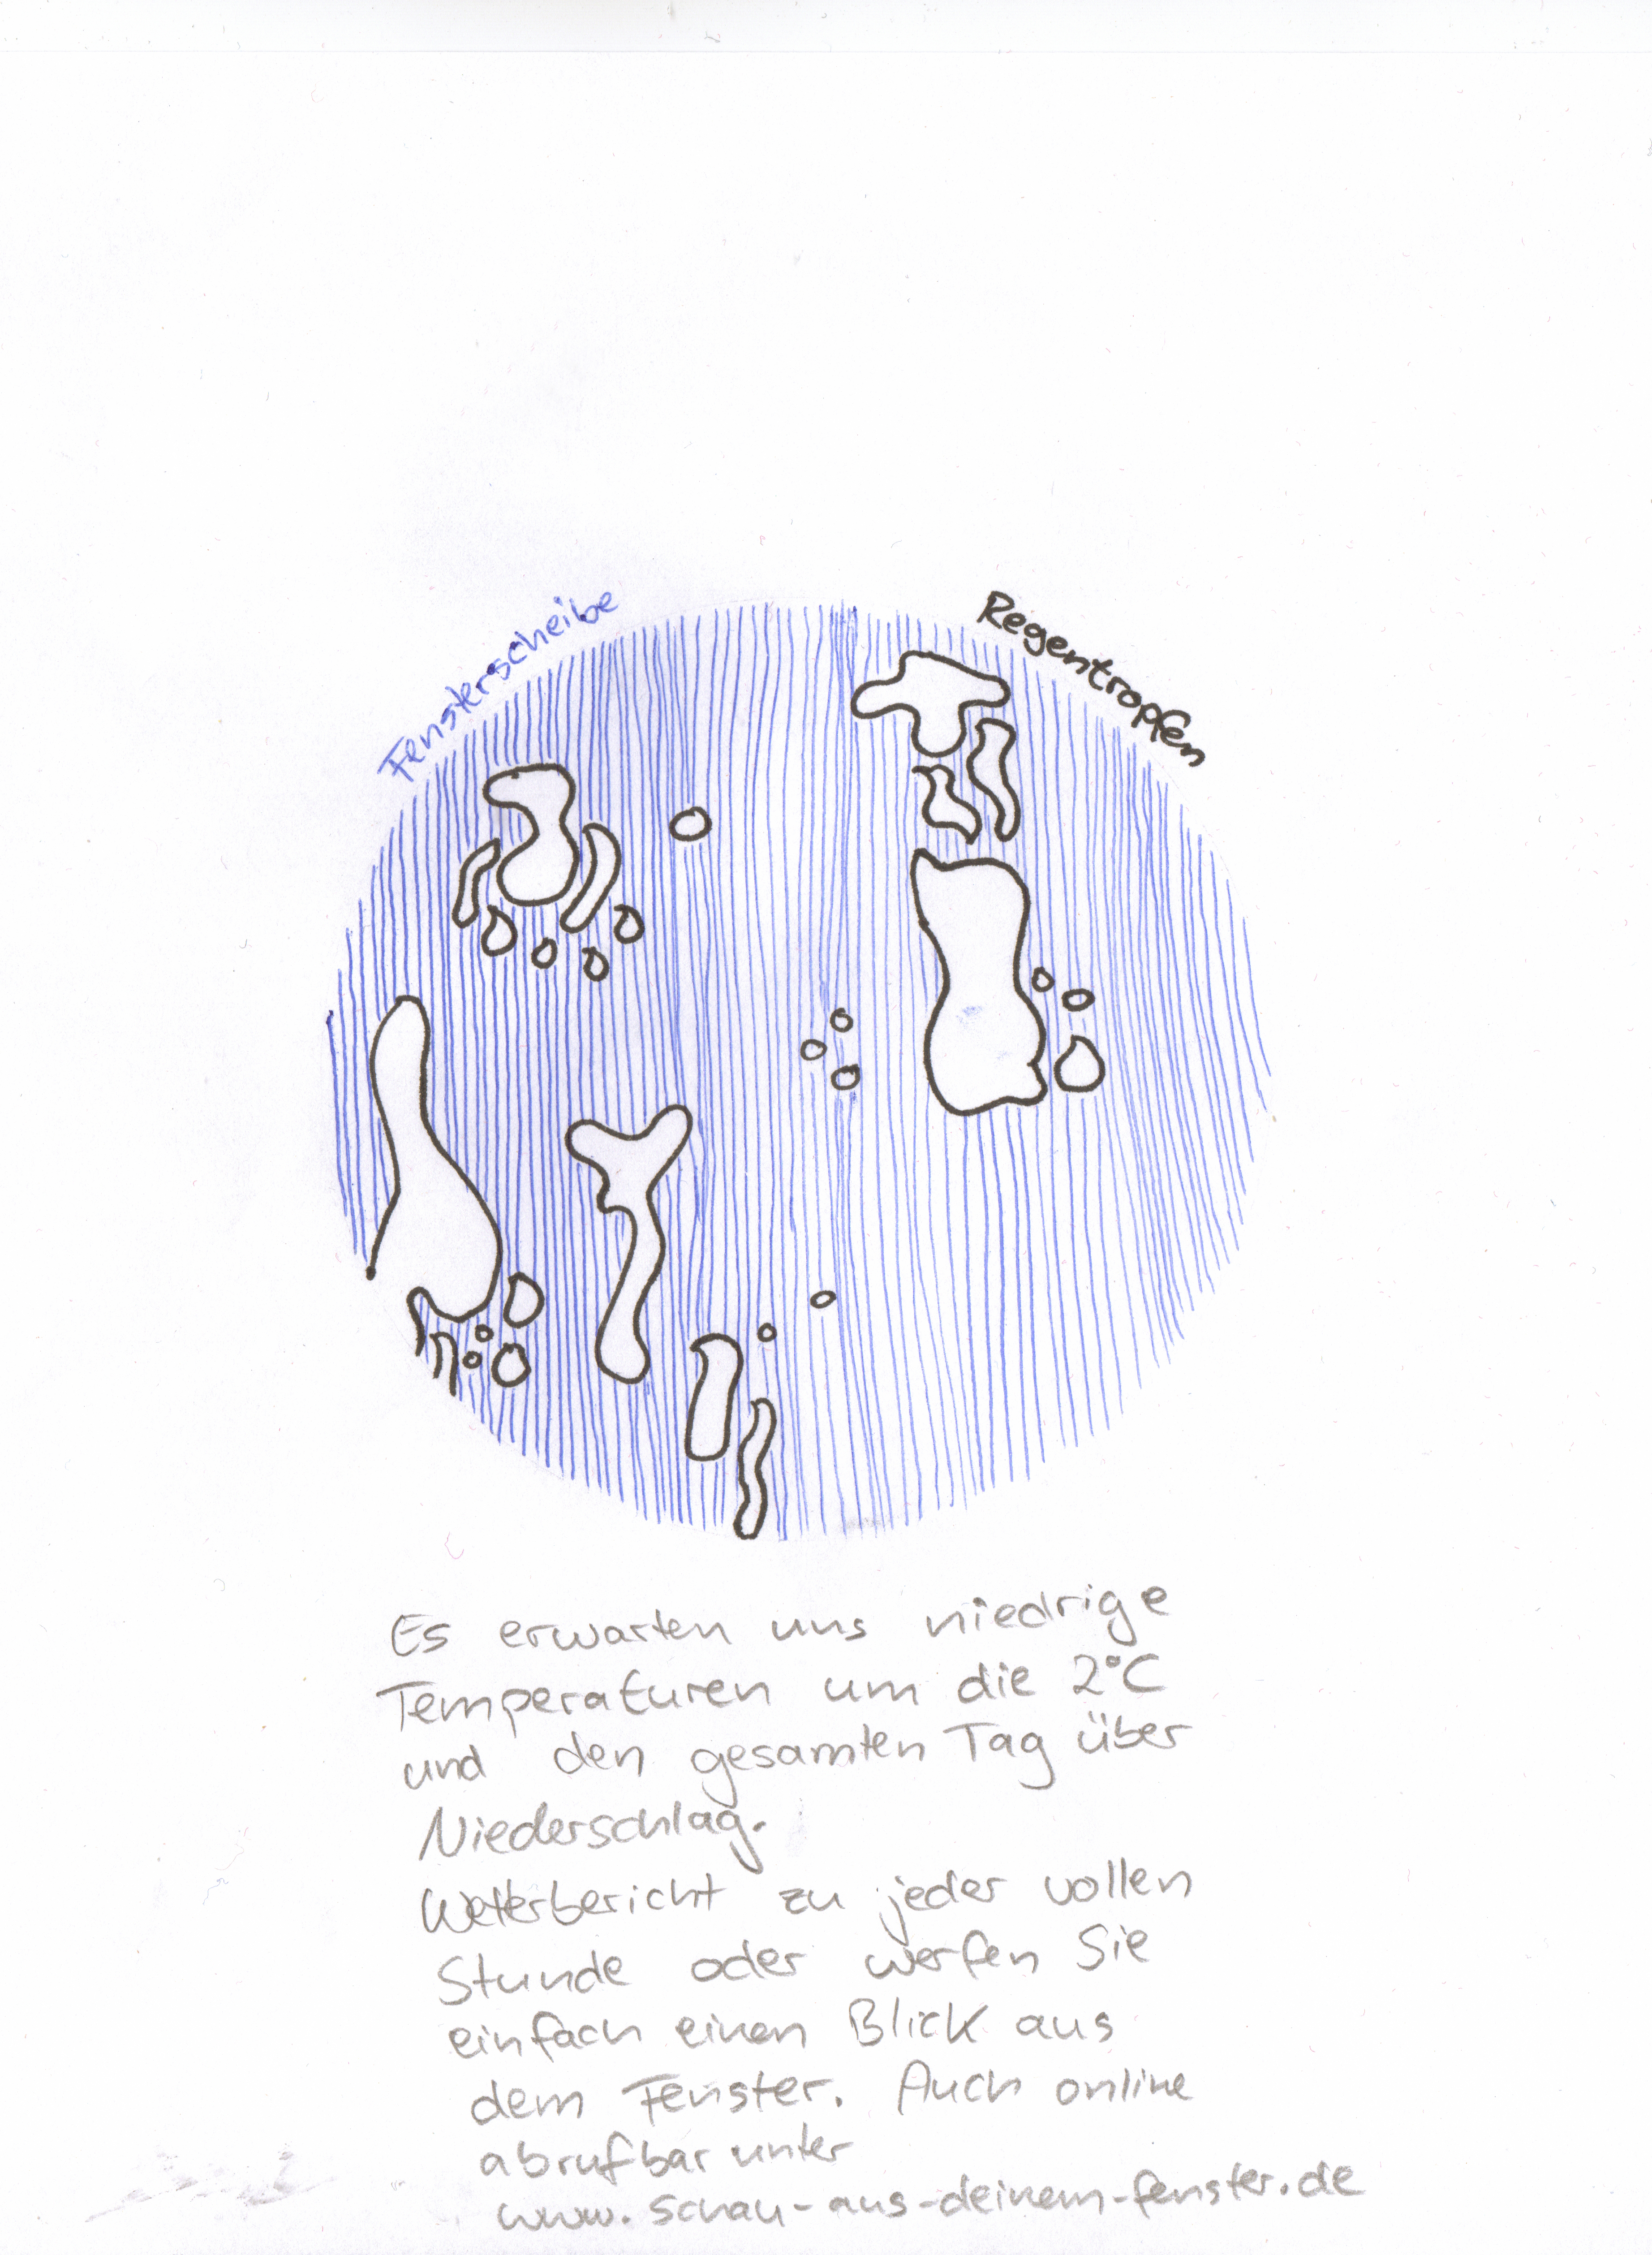 Fensterscheibe
Regentropfen
Es erwarten uns niedrige
Temperaturen um die 2°C
und den gesamten Tag über
Niederschlag.
Wetterbericht zu jeder vollen
Stunde oder werfen Sie
einfach einen Blick aus
dem Fenster. Auch online
abrufbar unter
www.schau-aus-deinem-fenster.de